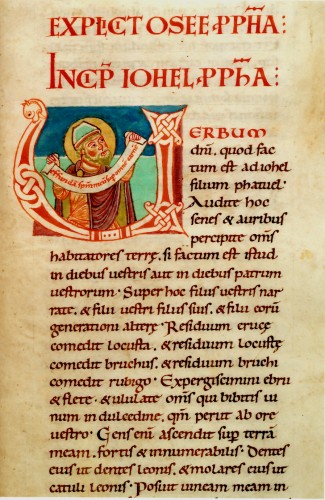 EXPLICT OSEE·PPHA:
INCP IOHEL·PPHA:
VERBUM
dñi, quod fac
tum est ad iohel
filium phatuel.
Audite hoc
senes & auribus
percipite om̄s
habitatores terrę. si factum est istud
in diebus vestris aut in diebus patrum
vestrorum. Super hoc filiis vestris nar
rate, & filii vestri filiis suis, & filii eorū
generationi alterę. Residuum erucę
comedit locusta, & residuum locustę
comedit bruchus, & residuum bruchi
comedit rubigo. Expergiscimini ebrii
& flete, & ululate om̄s qui bibitis ui
num in dulcedine, qm̄ periit ab ore
vestro. Gens enī ascendit sup̄ terrā
meam, fortis & innumerabilis. Dentes
eius ut dentes leonis, & molares eius ut
catuli leonis. Posuit uineam meam in